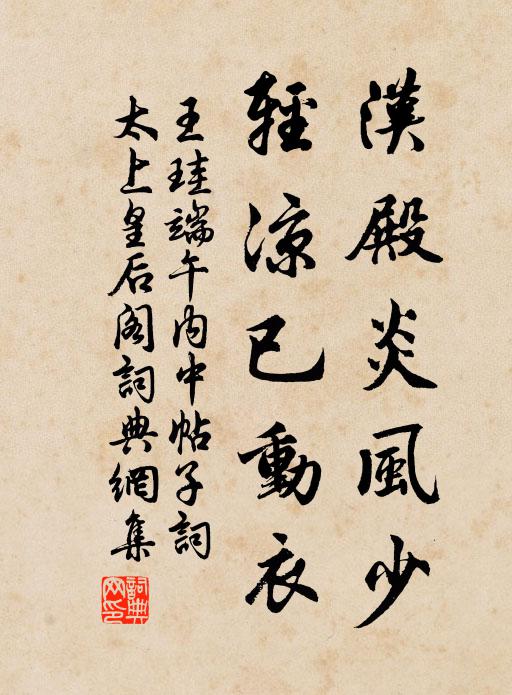 漢殿炎風少
輕涼已動衣
王珪端午內中帖子詞
太上皇后阁詞典網集
詞典網印